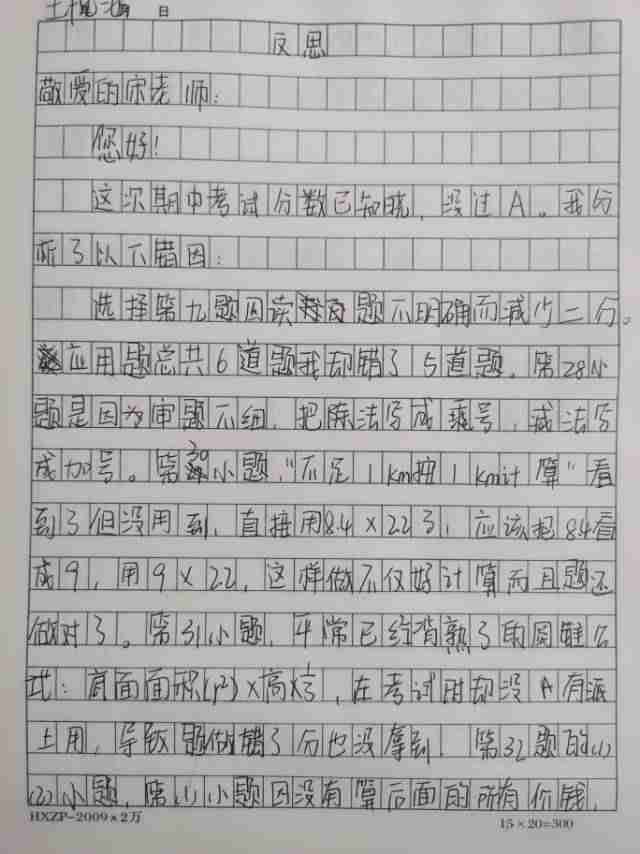 日
反思
敬爱的宋老师：
您好！
这次期中考试分数已知晓，没过A。我分
析了以下错因：
选择第九题因读题不明确而减少二分。
应用题总共6道题我却错了5道题。第28小
题是因为审题不细，把除法写成乘号，减法写
成加号。第30小题，“不足1km按1km计算”看
到了但没用到，直接用8.4×22了，应该把8.4看
成9，用9×22，这样做不仅好计算而且题还
做对了。第31小题，平常已经背熟了的圆锥公
式：底面面积(r²)×高×1/3，在考试时却没有派
上用，导致题做错了分也没拿到。第32题的(1)
(2)小题，第(1)小题因没有算后面的所有价钱，
HXZP-2009×2万
15×20=300